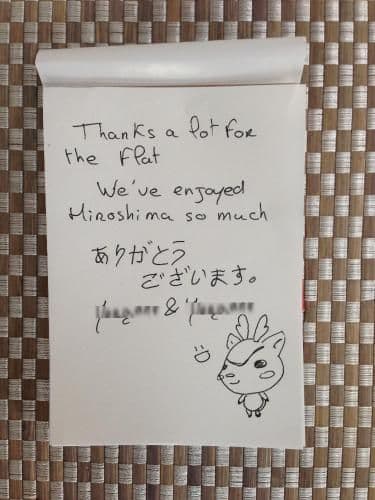 Thanks a lot for
the flat
We've enjoyed
Hiroshima so much
ありがとう
ございます。
&
:D